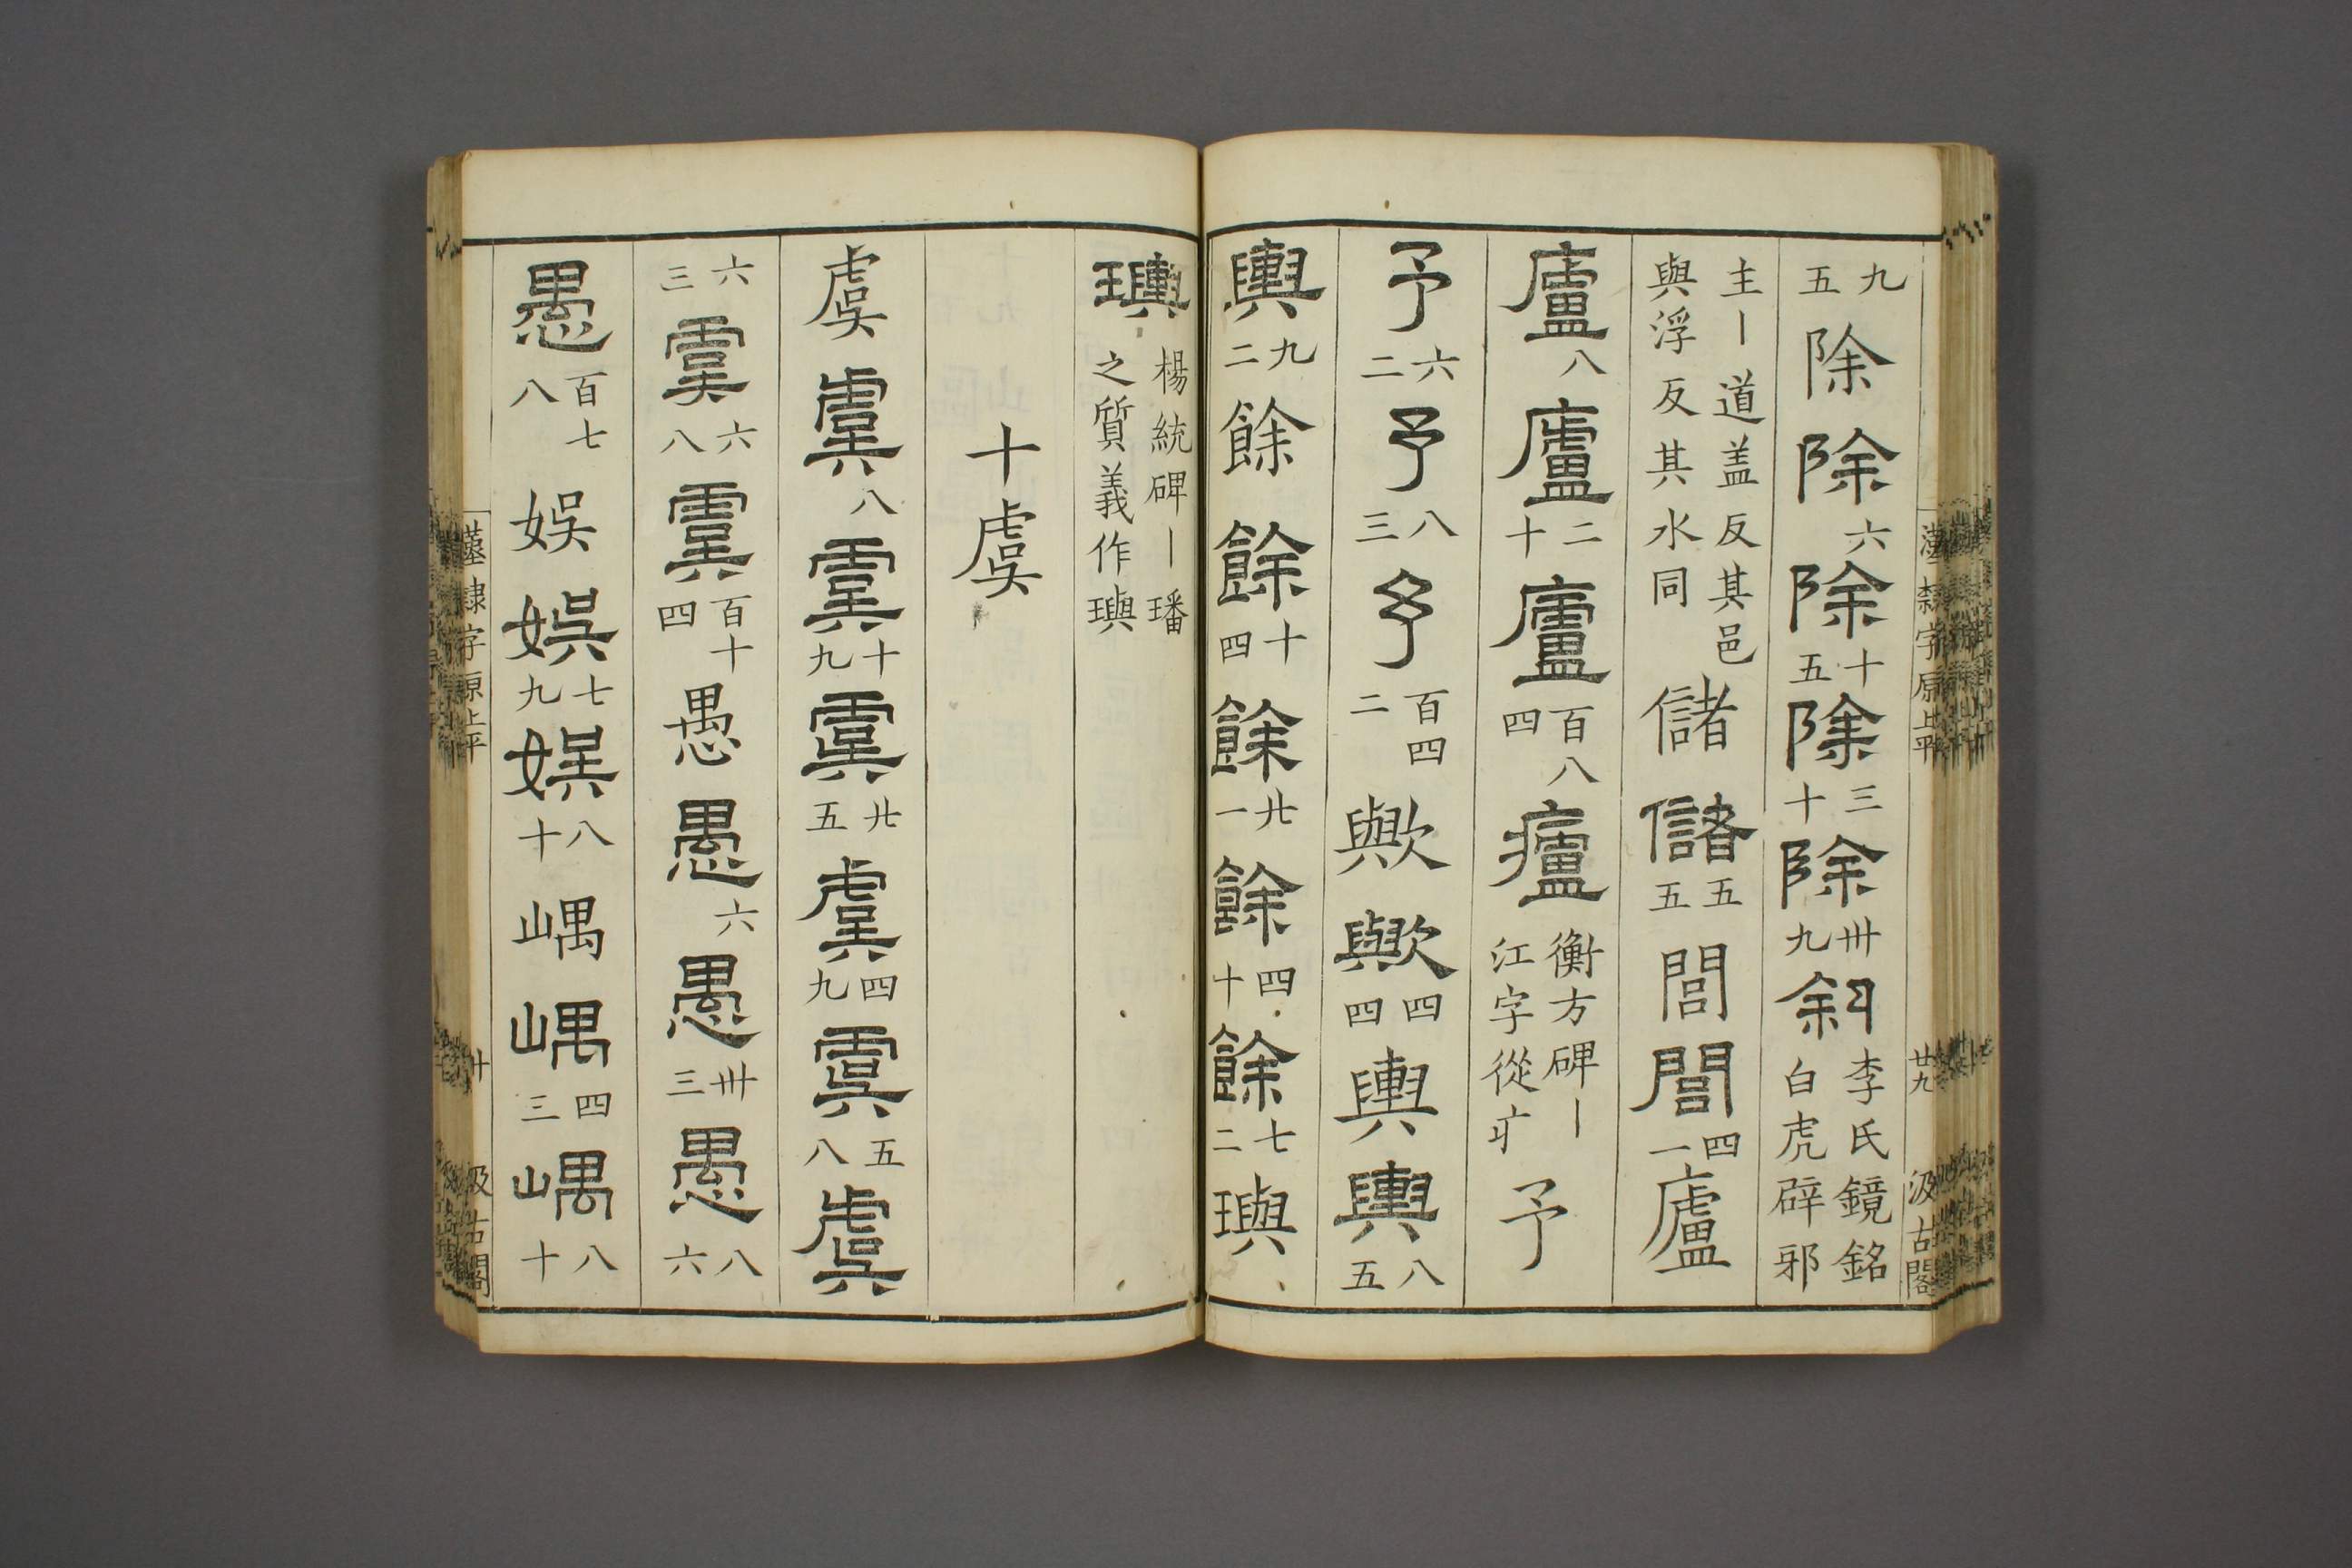 九五除除六除十五除三十除卅九斜李氏鏡銘白虎辟邪
主丨道盖反其邑與浮反其水同儲儲五五閭閭四一廬
廬八廬二十廬百八四廬衡方碑丨江字從疒予
予六二予八三予百四二歟歟四四輿輿八五
輿九二餘餘十四餘廿一餘四十餘七二璵
漢隸字原上平 廿九 汲古閣
璵楊統碑丨璠之質義作璵
十虞
虞虞八虞十九虞廿五虞四九虞五八虞
六三虞六八虞百十四愚愚六愚卅三愚八六
愚百七八娛娛七九娛八十嵎嵎四三嵎八十
漢隸字原上平 卅 汲古閣